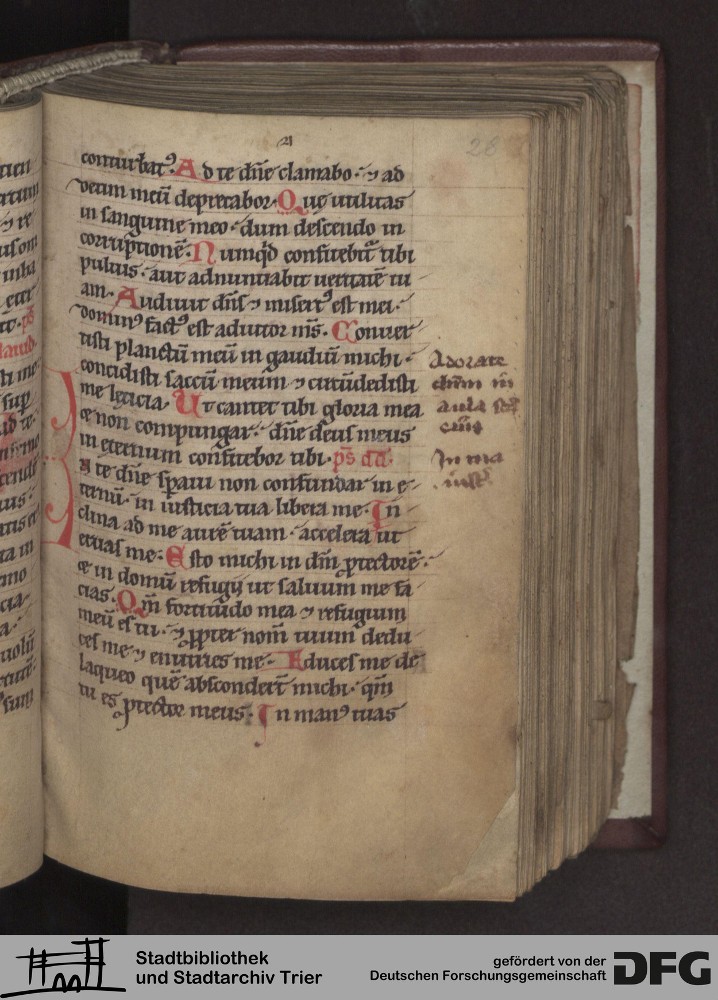 21
28
conturbat᷒. Ad te dn̄e clamabo · ⁊ ad
deum meū deprecabor. Quę utilitas
in sanguine meo · dum descendo in
corruptionē. Numqd̄ confitebit᷑ tibi
puluis · aut adnuntiabit ueritatē tu
am. Audiuit dn̄s ⁊ misert᷒ est mei ·
domin᷒ fact᷒ est adiutor m̄s. Conuer
tisti planctū meū in gaudiū michi ·
concidisti saccū meūm ⁊ circūdedisti
me lęticia. Ut cantet tibi gloria mea
⁊ non compungar · dn̄e deus meus
in eternum confitebor tibi. ps̄ dd̄.
IN te dn̄e sperauí non confundar in e
ternū · in iusticia tua libera me. In
clina ad me aurē tuam · accelera ut
eruas me. Esto michi in dm̄ ꝓtectorē ·
⁊ in domū refugij ut saluum me fa
cias. Qm̄ fortitudo mea ⁊ refugium
meū es tu · ⁊ ꝓpter nom̄ tuum dedu
ces me ⁊ enutries me. Educes me de
laqueo quē abscondert̄ michi · qm̄
tu es ꝓtector meus. In man᷒ tuas
Adorate
dn̄m in
aula
eius
In ma
Stadtbibliothek
und Stadtarchiv Trier
gefördert von der
Deutschen Forschungsgemeinschaft
DFG